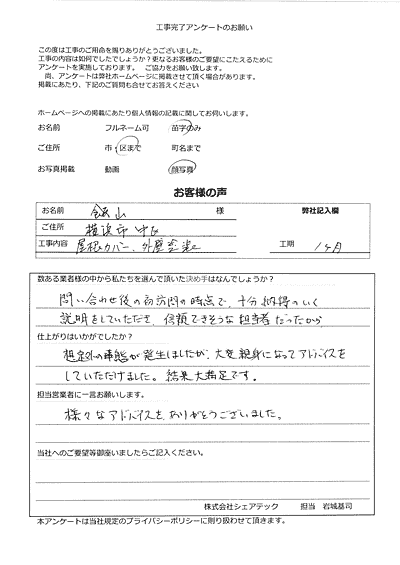 工事完了アンケートのお願い
この度は工事のご用命を賜りありがとうございました。
工事の内容は如何でしたでしょうか？更なるお客様のご要望にこたえるために
アンケートを実施しております。 ご協力をお願い致します。
尚、アンケートは弊社ホームページに掲載させて頂く場合があります。
掲載にあたり、下記のご質問も合せてお答えください
ホームページへの掲載にあたり個人情報の記載に関してお伺いします。
お名前 フルネーム可 苗字のみ
ご住所 市・区まで 町名まで
お写真掲載 動画 顔写真
お客様の声
お名前 飯山 様 弊社記入欄
ご住所 横浜市中区
工事内容 屋根カバー、外壁塗装 工期 1ヶ月
数ある業者様の中から私たちを選んで頂いた決め手はなんでしょうか？
問い合わせ後の初訪問の時点で、十分納得のいく
説明をしていただき、信頼できそうな担当者だったから
仕上がりはいかがでしたか？
想定外の事態が発生しましたが、大変親身になってアドバイスを
していただけました。結果大満足です。
担当営業者に一言お願いします。
様々なアドバイスを、ありがとうございました。
当社へのご要望等御座いましたらご記入ください。
株式会社シェアテック 担当 岩城基司
本アンケートは当社規定のプライバシーポリシーに則り扱わせて頂きます。